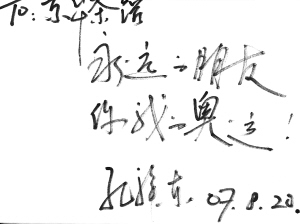 To: 京华奈路
永远的朋友
你我的奥运!
孔祥东 07.8.20.